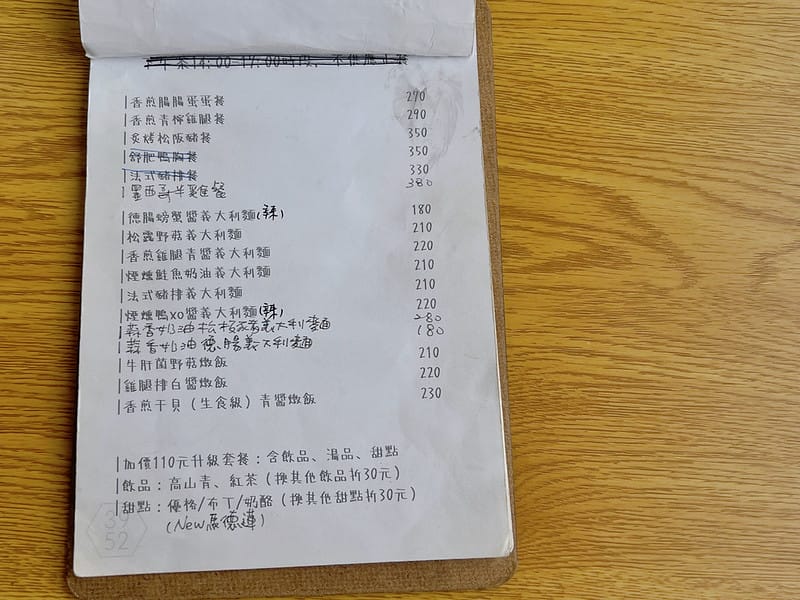 午茶14:00-17:00時段，不供應正餐
香煎腸腸蛋蛋餐 290
香煎青檸雞腿餐 290
炙烤松阪豬餐 350
舒肥鴨胸餐 350
法式豬排餐 330
墨西哥半雞餐 380
德腸螃蟹醬義大利麵(辣) 180
松露野菇義大利麵 210
香煎雞腿青醬義大利麵 220
煙燻鮭魚奶油義大利麵 210
法式豬排義大利麵 210
煙燻鴨XO醬義大利麵(辣) 220
蒜香奶油松板豬義大利麵 280
蒜香奶油德腸義大利麵 180
牛肝菌野菇燉飯 210
雞腿排白醬燉飯 220
香煎干貝（生食級）青醬燉飯 230
加價110元升級套餐：含飲品、湯品、甜點
飲品：高山青、紅茶（換其他飲品折30元）
甜點：優格/布丁/奶酪（換其他甜點折30元）
(New馬德蓮)
39
52